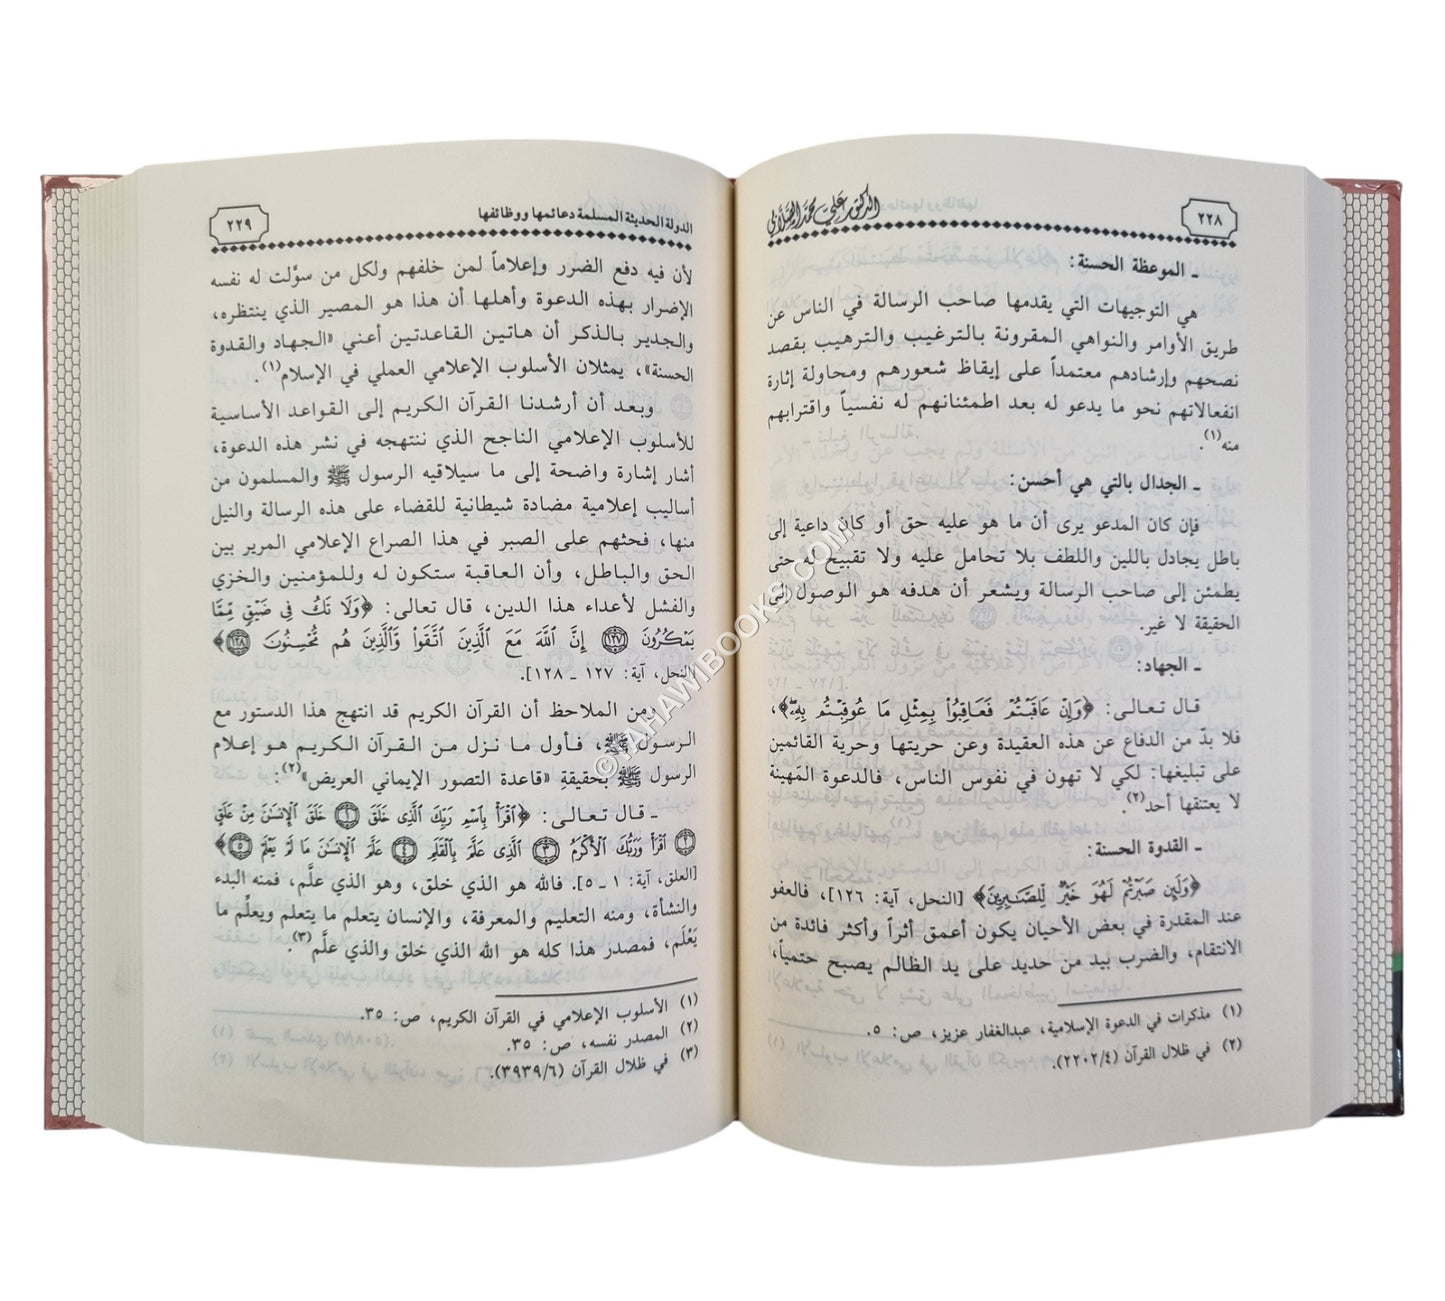 ٢٢٨
الدكتور علي محمد الصلابي
ـ الموعظة الحسنة:
هي التوجيهات التي يقدمها صاحب الرسالة في الناس عن
طريق الأوامر والنواهي المقرونة بالترغيب والترهيب بقصد
نصحهم وإرشادهم معتمداً على إيقاظ شعورهم ومحاولة إثارة
انفعالاتهم نحو ما يدعو له بعد اطمئنانهم له نفسياً واقترابهم
منه(١).
ـ الجدال بالتي هي أحسن:
فإن كان المدعو يرى أن ما هو عليه حق أو كان داعية إلى
باطل يجادل باللين واللطف بلا تحامل عليه ولا تقبيح له حتى
يطمئن إلى صاحب الرسالة ويشعر أن هدفه هو الوصول إلى
الحقيقة لا غير.
ـ الجهاد:
قال تعالى: ﴿وَإِنْ عَاقَبْتُمْ فَعَاقِبُوا۟ بِمِثْلِ مَا عُوقِبْتُم بِهِۦ﴾،
فلا بدّ من الدفاع عن هذه العقيدة وعن حريتها وحرية القائمين
على تبليغها: لكي لا تهون في نفوس الناس، فالدعوة المَهينة
لا يعتنقها أحد(٢).
ـ القدوة الحسنة:
﴿وَلَئِن صَبَرْتُمْ لَهُوَ خَيْرٌ لِّلصَّـٰبِرِينَ﴾ [النحل، آية: ١٢٦]، فالعفو
عند المقدرة في بعض الأحيان يكون أعمق أثراً وأكثر فائدة من
الانتقام، والضرب بيد من حديد على يد الظالم يصبح حتمياً،
(١) مذكرات في الدعوة الإسلامية، عبدالغفار عزيز، ص: ٥.
(٢) في ظلال القرآن (٢٢٠٢/٤).
الدولة الحديثة المسلمة دعائمها ووظائفها
٢٢٩
لأن فيه دفع الضرر وإعلاماً لمن خلفهم ولكل من سوَّلت له نفسه
الإضرار بهذه الدعوة وأهلها أن هذا هو المصير الذي ينتظره،
والجدير بالذكر أن هاتين القاعدتين أعني «الجهاد والقدوة
الحسنة»، يمثلان الأسلوب الإعلامي العملي في الإسلام(١).
وبعد أن أرشدنا القرآن الكريم إلى القواعد الأساسية
للأسلوب الإعلامي الناجح الذي ننتهجه في نشر هذه الدعوة،
أشار إشارة واضحة إلى ما سيلاقيه الرسول ﷺ والمسلمون من
أساليب إعلامية مضادة شيطانية للقضاء على هذه الرسالة والنيل
منها، فحثهم على الصبر في هذا الصراع الإعلامي المرير بين
الحق والباطل، وأن العاقبة ستكون له وللمؤمنين والخزي
والفشل لأعداء هذا الدين، قال تعالى: ﴿وَلَا تَكُ فِى ضَيْقٍ مِّمَّا
يَمْكُرُونَ ١٢٧ إِنَّ ٱللَّهَ مَعَ ٱلَّذِينَ ٱتَّقَوا۟ وَّٱلَّذِينَ هُم مُّحْسِنُونَ ١٢٨﴾
[النحل، آية: ١٢٧ ـ ١٢٨].
ومن الملاحظ أن القرآن الكريم قد انتهج هذا الدستور مع
الرسول ﷺ، فأول ما نزل من القرآن الكريم هو إعلام
الرسول ﷺ بحقيقةِ «قاعدة التصور الإيماني العريض»(٢):
ـ قال تعالى: ﴿ٱقْرَأْ بِٱسْمِ رَبِّكَ ٱلَّذِى خَلَقَ ١ خَلَقَ ٱلْإِنسَـٰنَ مِنْ عَلَقٍ
٢ ٱقْرَأْ وَرَبُّكَ ٱلْأَكْرَمُ ٣ ٱلَّذِى عَلَّمَ بِٱلْقَلَمِ ٤ عَلَّمَ ٱلْإِنسَـٰنَ مَا لَمْ يَعْلَمْ ٥﴾
[العلق، آية: ١ ـ ٥]. فالله هو الذي خلق، وهو الذي علَّم، فمنه البدء
والنشأة، ومنه التعليم والمعرفة، والإنسان يتعلم ما يتعلم ويعلِّم ما
يَعْلَم، فمصدر هذا كله هو الله الذي خلق والذي علَّم(٣).
(١) الأسلوب الإعلامي في القرآن الكريم، ص: ٣٥.
(٢) المصدر نفسه، ص: ٣٥.
(٣) في ظلال القرآن (٣٩٣٩/٦).
©TAHAWIBOOKS.COM